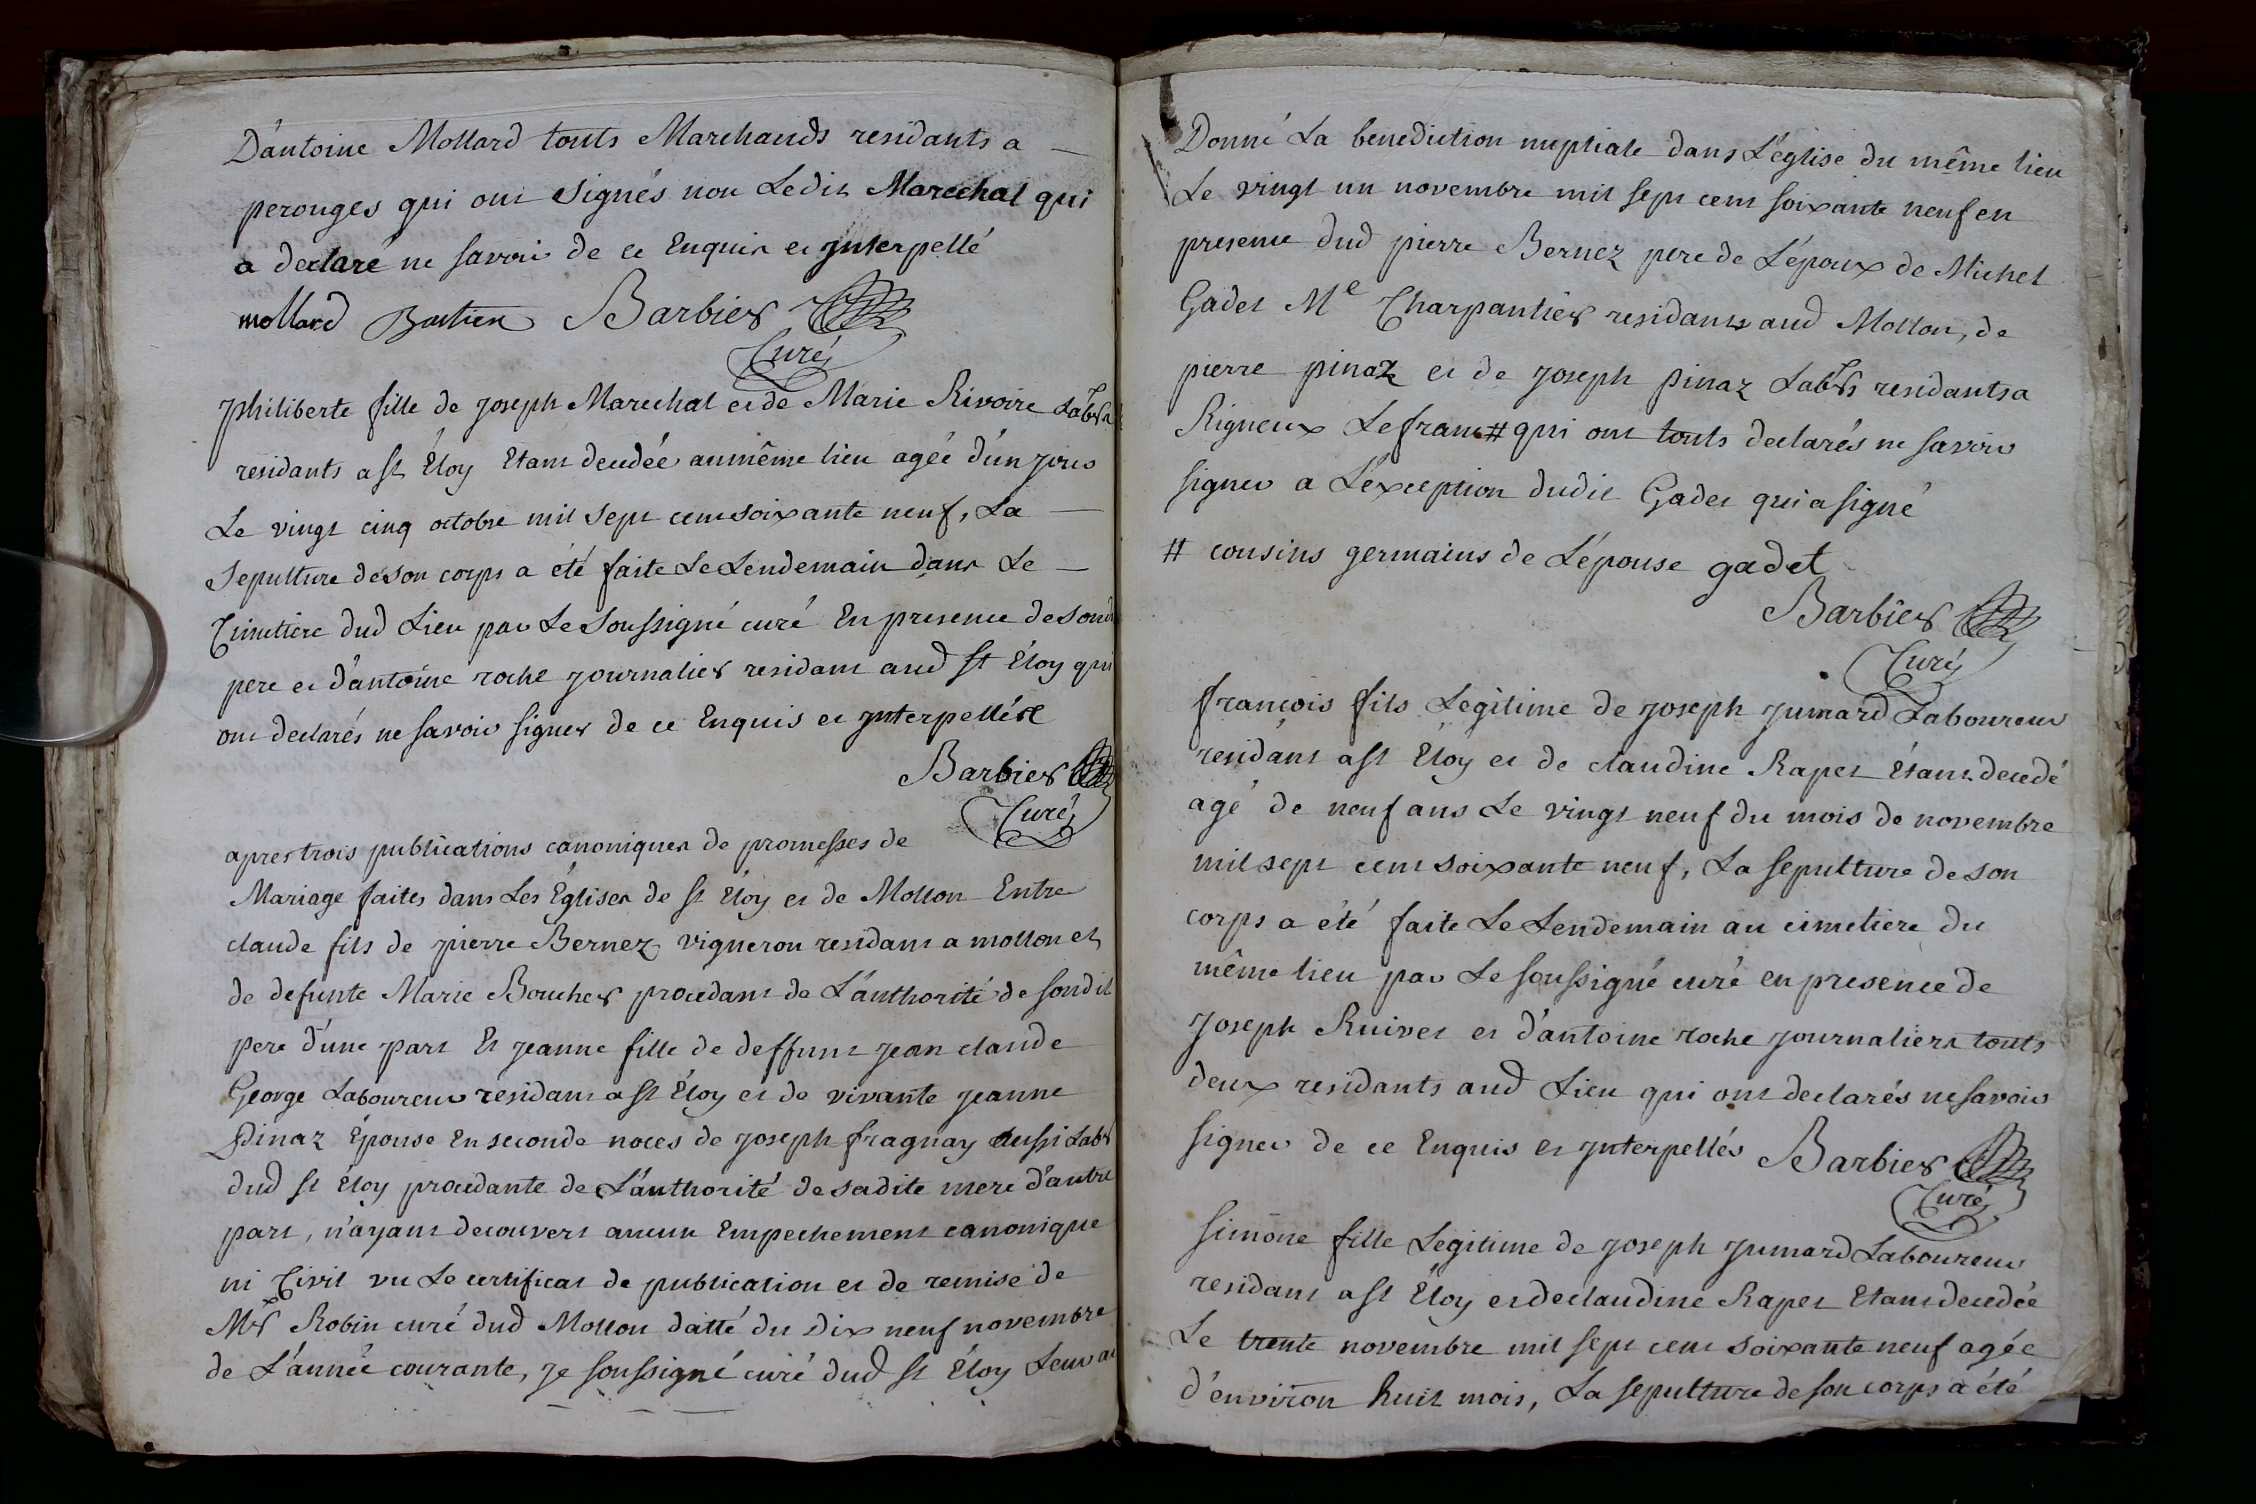 D'antoine Mollard touts Marchands residants a
perouges qui ont signés non Ledit Marechal qui
a declaré ne savoir de ce Enquis et ynterpellé
mollard Bastien Barbier
Curé
philiberte fille de joseph Marechal et de Marie Rivoire Labrs
residants a st Éloy Etant decedée au même lieu agée d'un jour
Le vingt cinq octobre mil sept cent soixante neuf, La
Sepulture de son corps a été faite Le Lendemain dans Le
Cimetiere dud Lieu par Le Soussigné curé En presence de son
pere et d'antoine roche journalier residant aud st Éloy qui
ont declarés ne savoir signer de ce Enquis et ynterpellés
Barbier
Curé
apres trois publications canoniques de promesses de
Mariage faites dans Les Églises de st Éloy et de Mollon Entre
claude fils de pierre Bernez vigneron residant a mollon et
de defunte Marie Boucher procedant de L'authorité de sondit
pere d'une part Et jeanne fille de deffunt jean claude
George Laboureur residant a st Éloy et de vivante jeanne
Pinaz Épouse En seconde noces de joseph fragnay aussi Labr
dud st Éloy procedante de L'authorité de sadite mere d'autre
part, n'ayant decouvert aucun Empechement canonique
ni Civil vu Le certificat de publication et de remise de
Mr Robin curé dud Mollon datté du dix neuf novembre
de L'année courante, je soussigné curé dud st Éloy Leur ai
Donné La benediction nuptiale dans L'église du même lieu
Le vingt un novembre mil sept cent soixante neuf en
presence dud pierre Bernez pere de L'époux de Michel
Gadet Me Charpantier residants aud Mollon, de
pierre pinaz et de joseph pinaz Labrs residants a
Rigneux Le franc # qui ont touts declarés ne savoir
signer a L'exception dudit Gadet qui a signé
# cousins germains de L'épouse gadet
Barbier
Curé
françois fils Legitime de joseph jumard Laboureur
residant a st Éloy et de claudine Rapet Étant decedé
agé de neuf ans Le vingt neuf du mois de novembre
mil sept cent soixante neuf, La sepulture de son
corps a été faite Le Lendemain au cimetiere du
même lieu par Le soussigné curé en presence de
joseph Ruivet et d'antoine roche journaliers touts
deux residants aud Lieu qui ont declarés ne savoir
signer de ce Enquis et ynterpellés Barbier
Curé
simone fille Legitime de joseph jumard Laboureur
residant a st Éloy et de claudine Rapet Etant decedée
Le trente novembre mil sept cent soixante neuf agée
d'environ huit mois, La sepulture de son corps a été